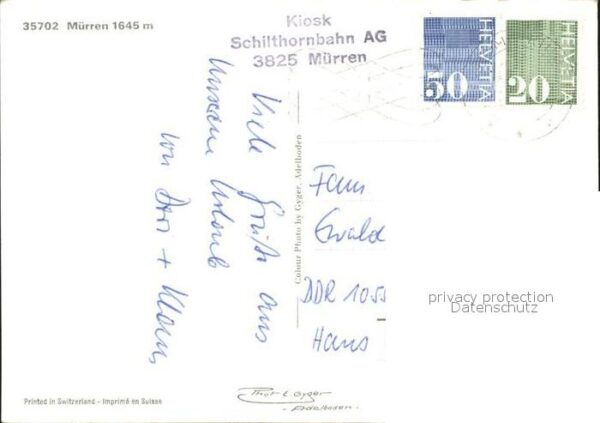 35702 Mürren 1645 m
Kiosk
Schilthornbahn AG
3825 Mürren
50 HELVETIA
20 HELVETIA
Viele Grüße aus
unserem Urlaub
von + Klaus
Colour Photo by Gyger, Adelboden
Fam
Ewald
DDR 1055
Hans
privacy protection
Datenschutz
Printed in Switzerland - Imprimé en Suisse
Phot E. Gyger
- Adelboden -